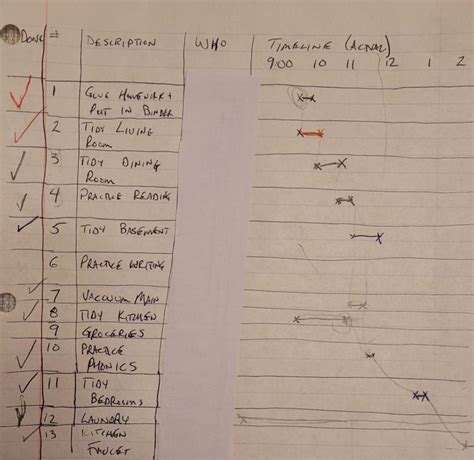 Done # DESCRIPTION WHO TIMELINE (ACTUAL)
9:00 10 11 12 1 2
1 GLUE HOMEWORK +
PUT IN BINDER
2 TIDY LIVING
ROOM
3 TIDY DINING
ROOM
4 PRACTICE READING
5 TIDY BASEMENT
6 PRACTICE WRITING
7 VACUUM MAIN
8 TIDY KITCHEN
9 GROCERIES
10 PRACTICE
PHONICS
11 TIDY
BEDROOMS
12 LAUNDRY
13 KITCHEN
FAUCET